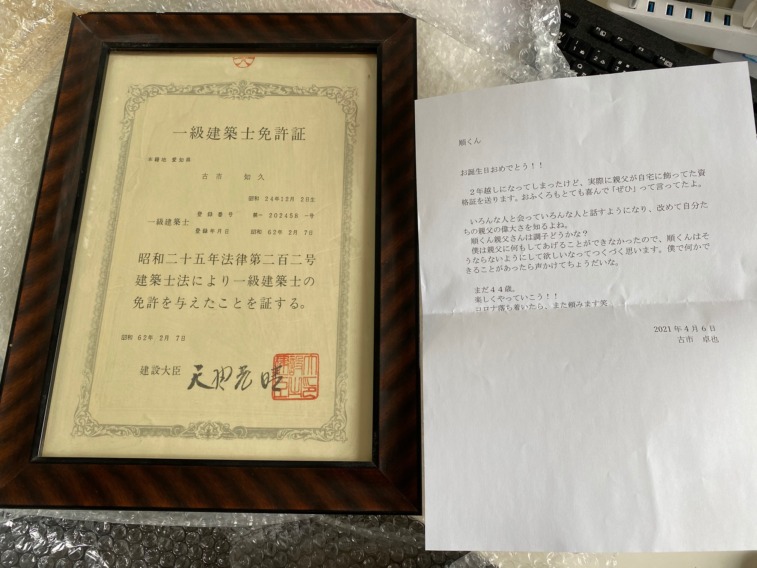 一級建築士免許証
本籍地 愛知県
古市 知久
昭和 24年12月 2日生
一級建築士
登録番号 第一 202458 一号
登録年月日 昭和 62年 2月 7日
昭和二十五年法律第二百二号
建築士法により一級建築士の
免許を与えたことを証する。
昭和 62年 2月 7日
建設大臣 天野光晴
順くん
お誕生日おめでとう！！
２年越しになってしまったけど、実際に親父が自宅に飾ってた資
格証を送ります。おふくろもとても喜んで「ぜひ」って言ってたよ。
いろんな人と会っていろんな人と話すようになり、改めて自分た
ちの親父の偉大さを知るよね。
順くん親父さんは調子どうかな？
僕は親父に何もしてあげることができなかったので、順くんはそ
うならないようにして欲しいなってつくづく思います。僕で何かで
きることがあったら声かけてちょうだいな。
まだ４４歳。
楽しくやっていこう！！
コロナ落ち着いたら、また頼みます笑
2021年４月６日
古市 卓也